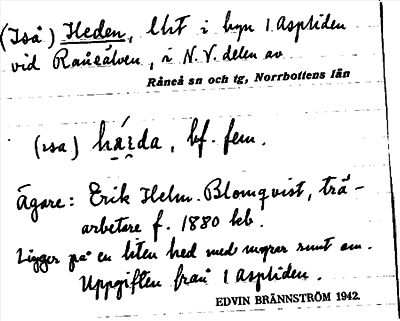 (Iså) Heden, lht i byn 1 Aspliden
vid Råneälven, i N.V. delen av
Råneå sn och tg, Norrbottens län
(ɪsa) hǡɪda, bf. fem.
Ägare: Erik Helm. Blomqvist, trä-
arbetare f. 1880 heb.
Ligger på en liten hed med myrar runt om.
Uppgiften från 1 Aspliden.
EDVIN BRÄNNSTRÖM 1942.